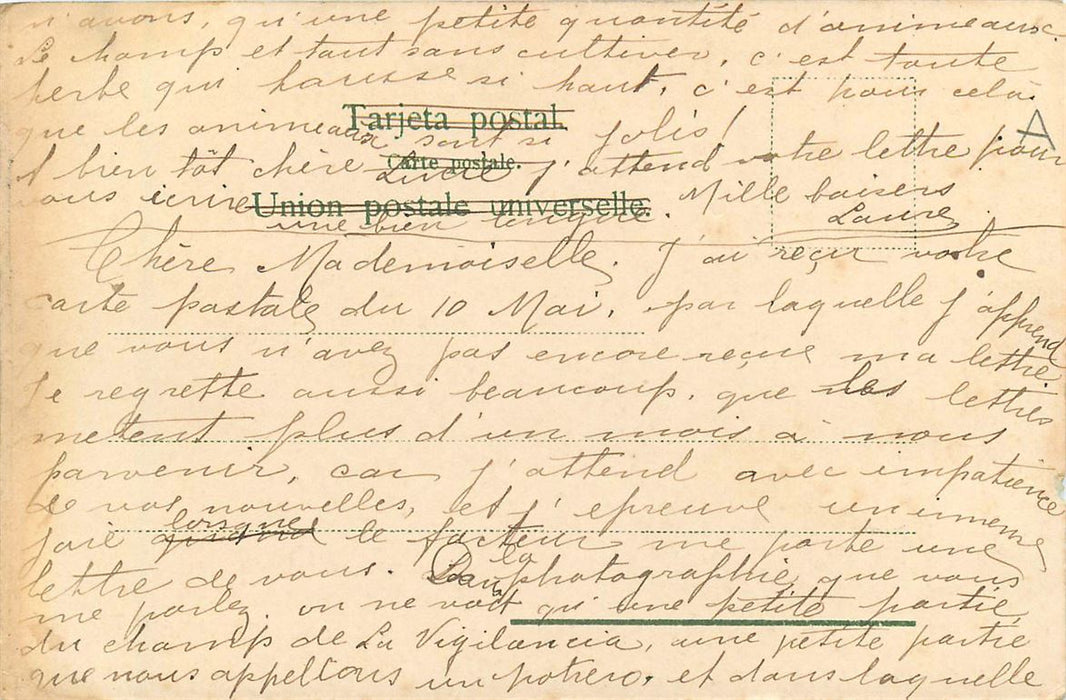 n'avons, qu'une petite quantité d'animeaux.
Le champ et tout sans cultiver, c'est toute
herbe qui hausse si haut, c'est pour celà
que les animeaux sont si jolis!
Tarjeta postal.
A
et bien tôt chère Lucie j'attend votre lettre pour
Carte postale.
vous ecrire une bien longue. Mille baisers
Union postale universelle.
Laure
Chère Mademoiselle. J'ai reçu votre
carte postale du 10 Mai, par laquelle j'apprend
que vous n'avez pas encore reçue ma lettre
Je regrette aussi beaucoup, que les lettres
metent plus d'un mois à nous
parvenir, car j'attend avec impatience
de vos nouvelles, et j'epreuve un imense
joie quand lorsque le facteur me porte une
lettre de vous. Dans la photographie que vous
me parlez, on ne voit qu'une petite partie
du champ de La Vigilancia, une petite partie
que nous appellons un potrero, et dans laquelle